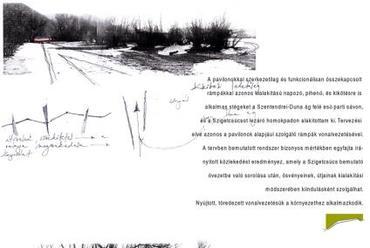 A pavilonokkal szerkezetileg és funkcionálisan összekapcsolt
rámpákkal azonos kialakítású napozó, pihenő, és kikötésre is
alkalmas stégeket a Szentendrei-Duna ág felé eső parti sávon,
és a Szigetcsúcsot lezáró homokpadon alakítottam ki. Tervezési
elve azonos a pavilonok alapjául szolgáló rámpák vonalvezetésével.
A tervben bemutatott rendszer bizonyos mértékben egyfajta irá-
nyított közlekedést eredményez, amely a Szigetcsúcs bemutató
övezetbe való sorolása után, ösvényeinek, útjainak kialakítási
módszerében kiindulásként szolgálhat.
Nyújtott, töredezett vonalvezetésük a környezethez alkalmazkodik.